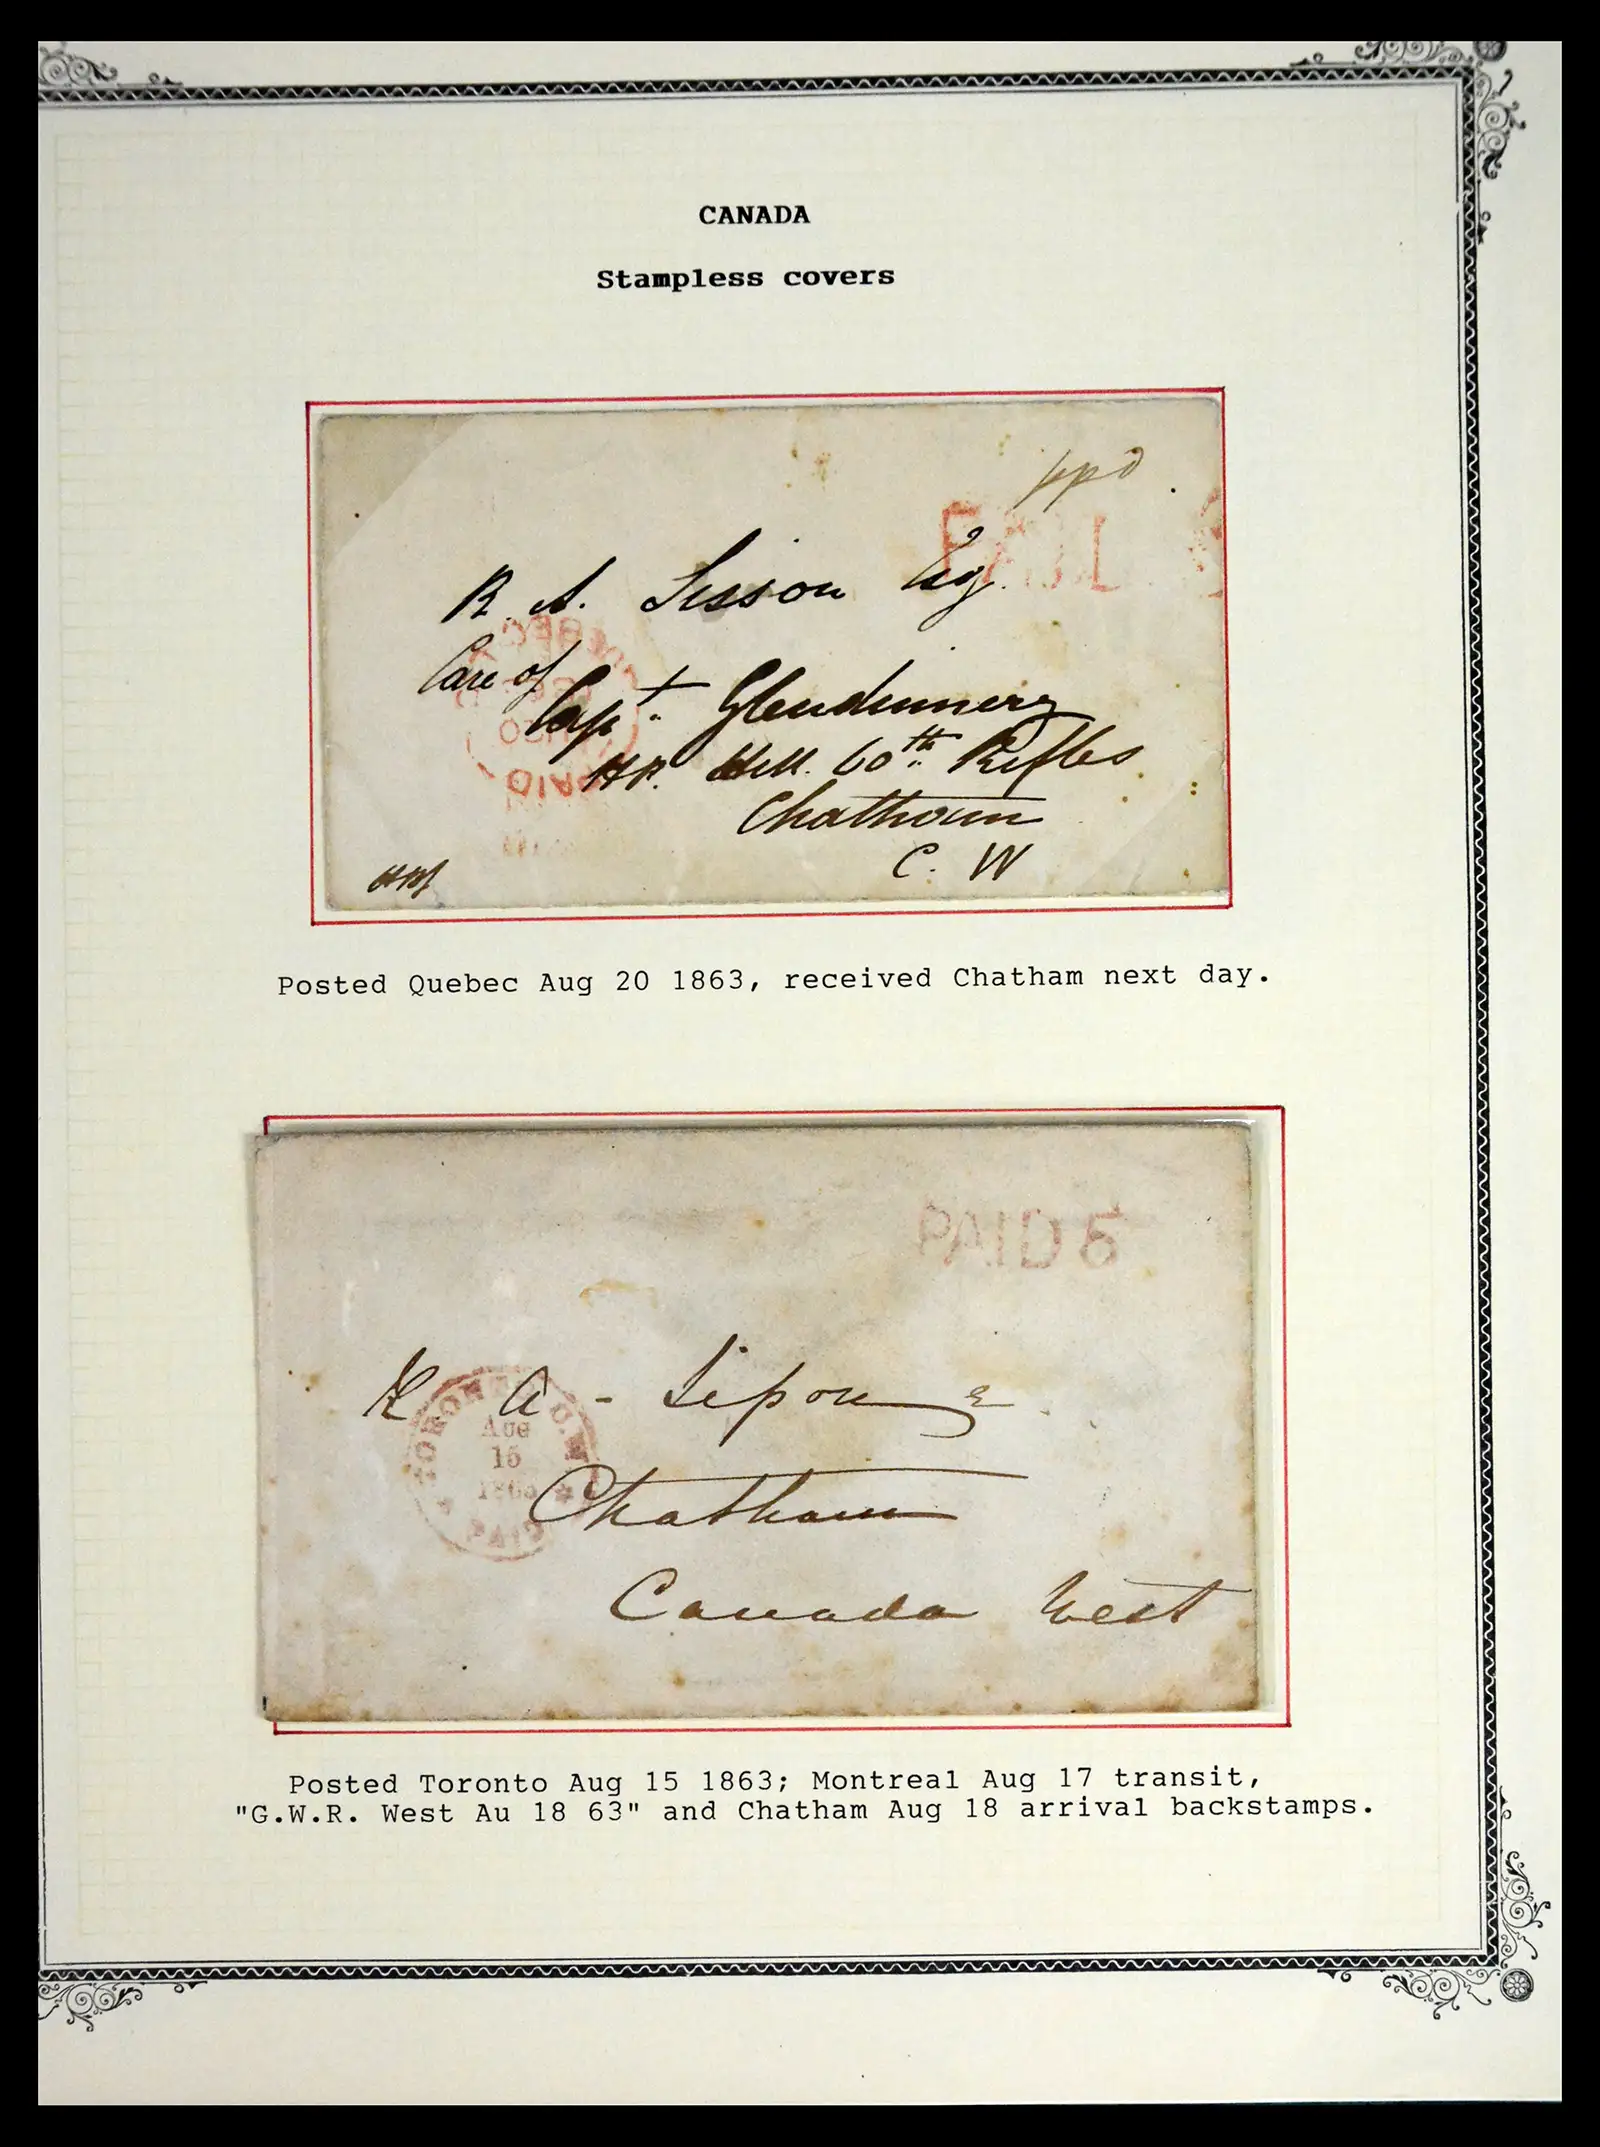 CANADA
Stampless covers
ppd
PAID
R. A. Sisson Esq.
Care of
Capt. Glendinning
QUEBEC
PAID
60th Rifles
Chatham
C. W
Posted Quebec Aug 20 1863, received Chatham next day.
PAID 5
R A - Sisson
TORONTO C.W.
AUG
15
1863
PAID
Chatham
Canada West
Posted Toronto Aug 15 1863; Montreal Aug 17 transit,
"G.W.R. West Au 18 63" and Chatham Aug 18 arrival backstamps.